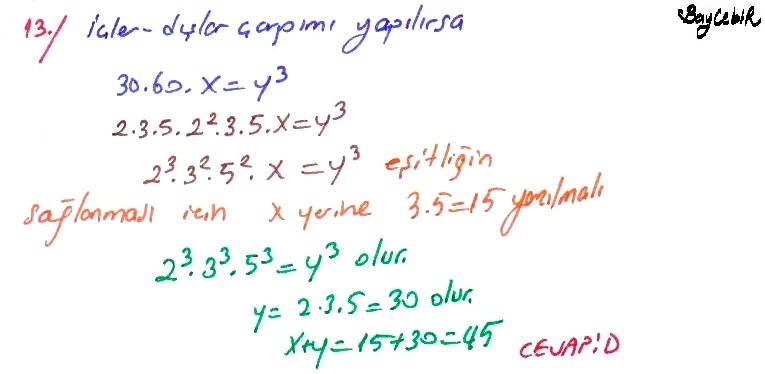 BayCebiR
13./ İçler-dışlar çarpımı yapılırsa
30.60.x=y³
2.3.5.2².3.5.x=y³
2³.3².5².x=y³ eşitliğin
sağlanması için x yerine 3.5=15 yazılmalı
2³.3³.5³=y³ olur.
y=2.3.5=30 olur.
x+y=15+30=45 CEVAP:D